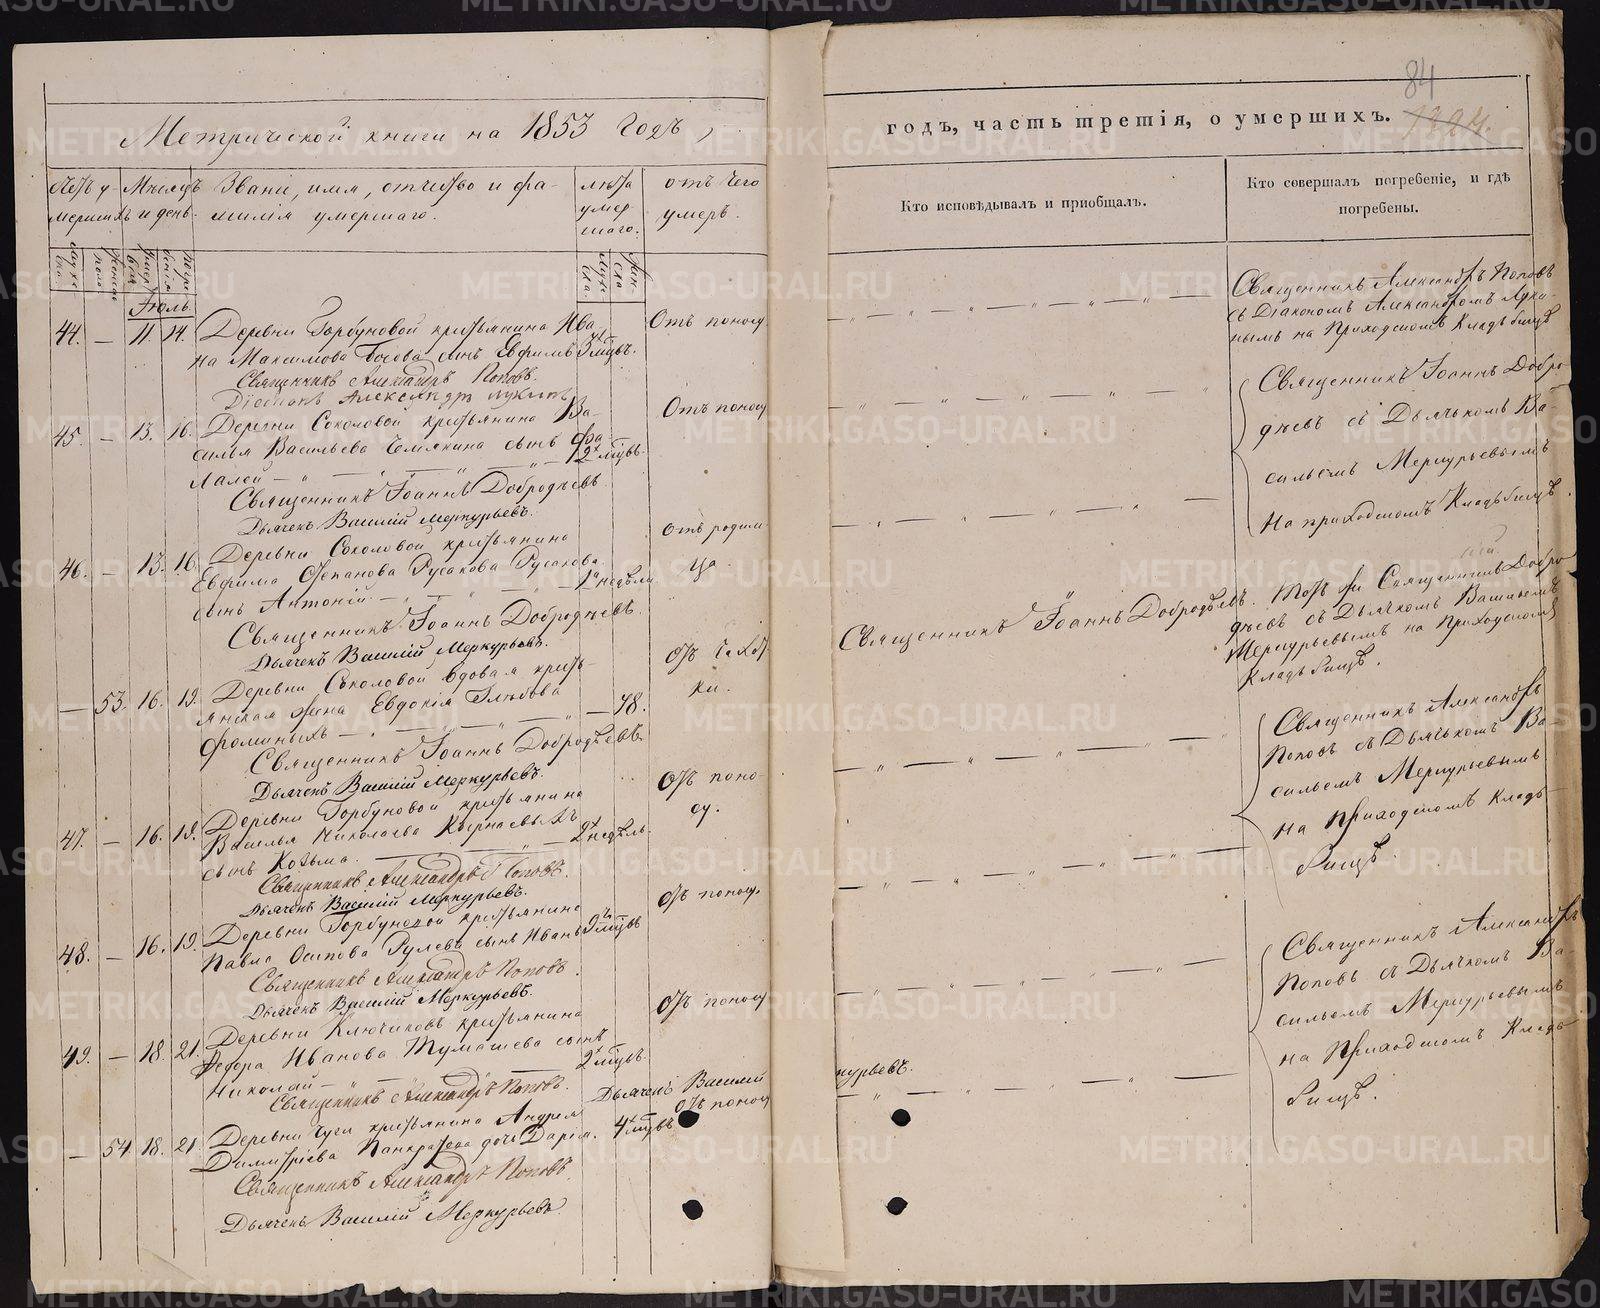 Метрической книги на 1853 годъ,
Счетъ умершихъ
Мѣсяцъ и день.
Званіе, имя, отчество и фамилія умершаго.
лѣта умершаго.
отъ чего умеръ.
Мужеска
пола
женска
Іюль
44. — 11. 14. Деревни Горбуновой крестьянина Ива
на Максимова сынъ Евфимъ 3 мѣсц. Отъ поносу
Священникъ Александръ Поповъ.
Діаконъ Александръ Лукинъ
45. — 13. 16. Деревни Соколовой крестьянина Ва-
силья Васильева сынъ Фа
лалей — 2 мѣсц. Отъ поносу
Священникъ Іоаннъ Добродѣевъ
Дьячекъ Василій Меркурьевъ.
46. — 13. 16. Деревни Соколовой крестьянина
Евфима Степанова Русакова Русакова
сынъ Антоній — 1 недѣли. Отъ родим
ца.
Священникъ Іоаннъ Добродѣевъ.
Дьячекъ Василій Меркурьевъ.
— 53. 16. 19. Деревни Соколовой вдовая кресть-
янская жена Евдокія Глѣбова
Фоминыхъ — 78. Отъ чахот
ки.
Священникъ Іоаннъ Добродѣевъ
Дьячекъ Василій Меркурьевъ.
47. — 16. 19. Деревни Горбуновой крестьянина
Василья Николаева
сынъ Козьма. — 2 недѣль. Отъ поно-
су.
Священникъ Александръ Поповъ.
Дьячекъ Василій Меркурьевъ.
48. — 16. 19. Деревни Горбуновой крестьянина
Павла Осипова Рулева сынъ Иванъ 9 мѣсц. Отъ поносу.
Священникъ Александръ Поповъ.
Дьячекъ Василій Меркурьевъ.
49. — 18. 21. Деревни Ключиковъ крестьянина
Федора Иванова Тумашева сынъ
Николай — 2 мѣсц. Отъ поносу
Священникъ Александръ Поповъ. Дьячекъ Василій Меркурьевъ.
— 54 18. 21. Деревни крестьянина Андрея
Димитріева Панкратова дочь Дарья. 4 мѣсц. Отъ поносу
Священникъ Александръ Поповъ.
Дьячекъ Василій Меркурьевъ
84
годъ, часть третія, о умершихъ. 1324.
Кто исповѣдывалъ и пріобщалъ.
Кто совершалъ погребеніе, и гдѣ
погребены.
Священникъ Александръ Поповъ
съ Діакономъ Александромъ Луки-
нымъ на Приходскомъ Кладбищѣ
Священникъ Іоаннъ Добро
дѣевъ съ Дьячькомъ Ва-
сильемъ Меркурьевымъ
На приходскомъ Кладбищѣ.
Священникъ Іоаннъ Добродѣевъ.
Тотъ же Священникъ Добро
дѣевъ съ Дьячкомъ Васильемъ
Меркурьевымъ на Приходскомъ
Кладбищѣ.
Священникъ Александръ
Поповъ съ Дьячькомъ Ва
сильемъ Меркурьевымъ
на Приходскомъ Кладъ-
бищѣ.
Священникъ Александръ
Поповъ съ Дьячкомъ Ва-
сильемъ Меркурьевымъ
на Приходскомъ Кладъ
бищѣ.
METRIKI.GASO-URAL.RU